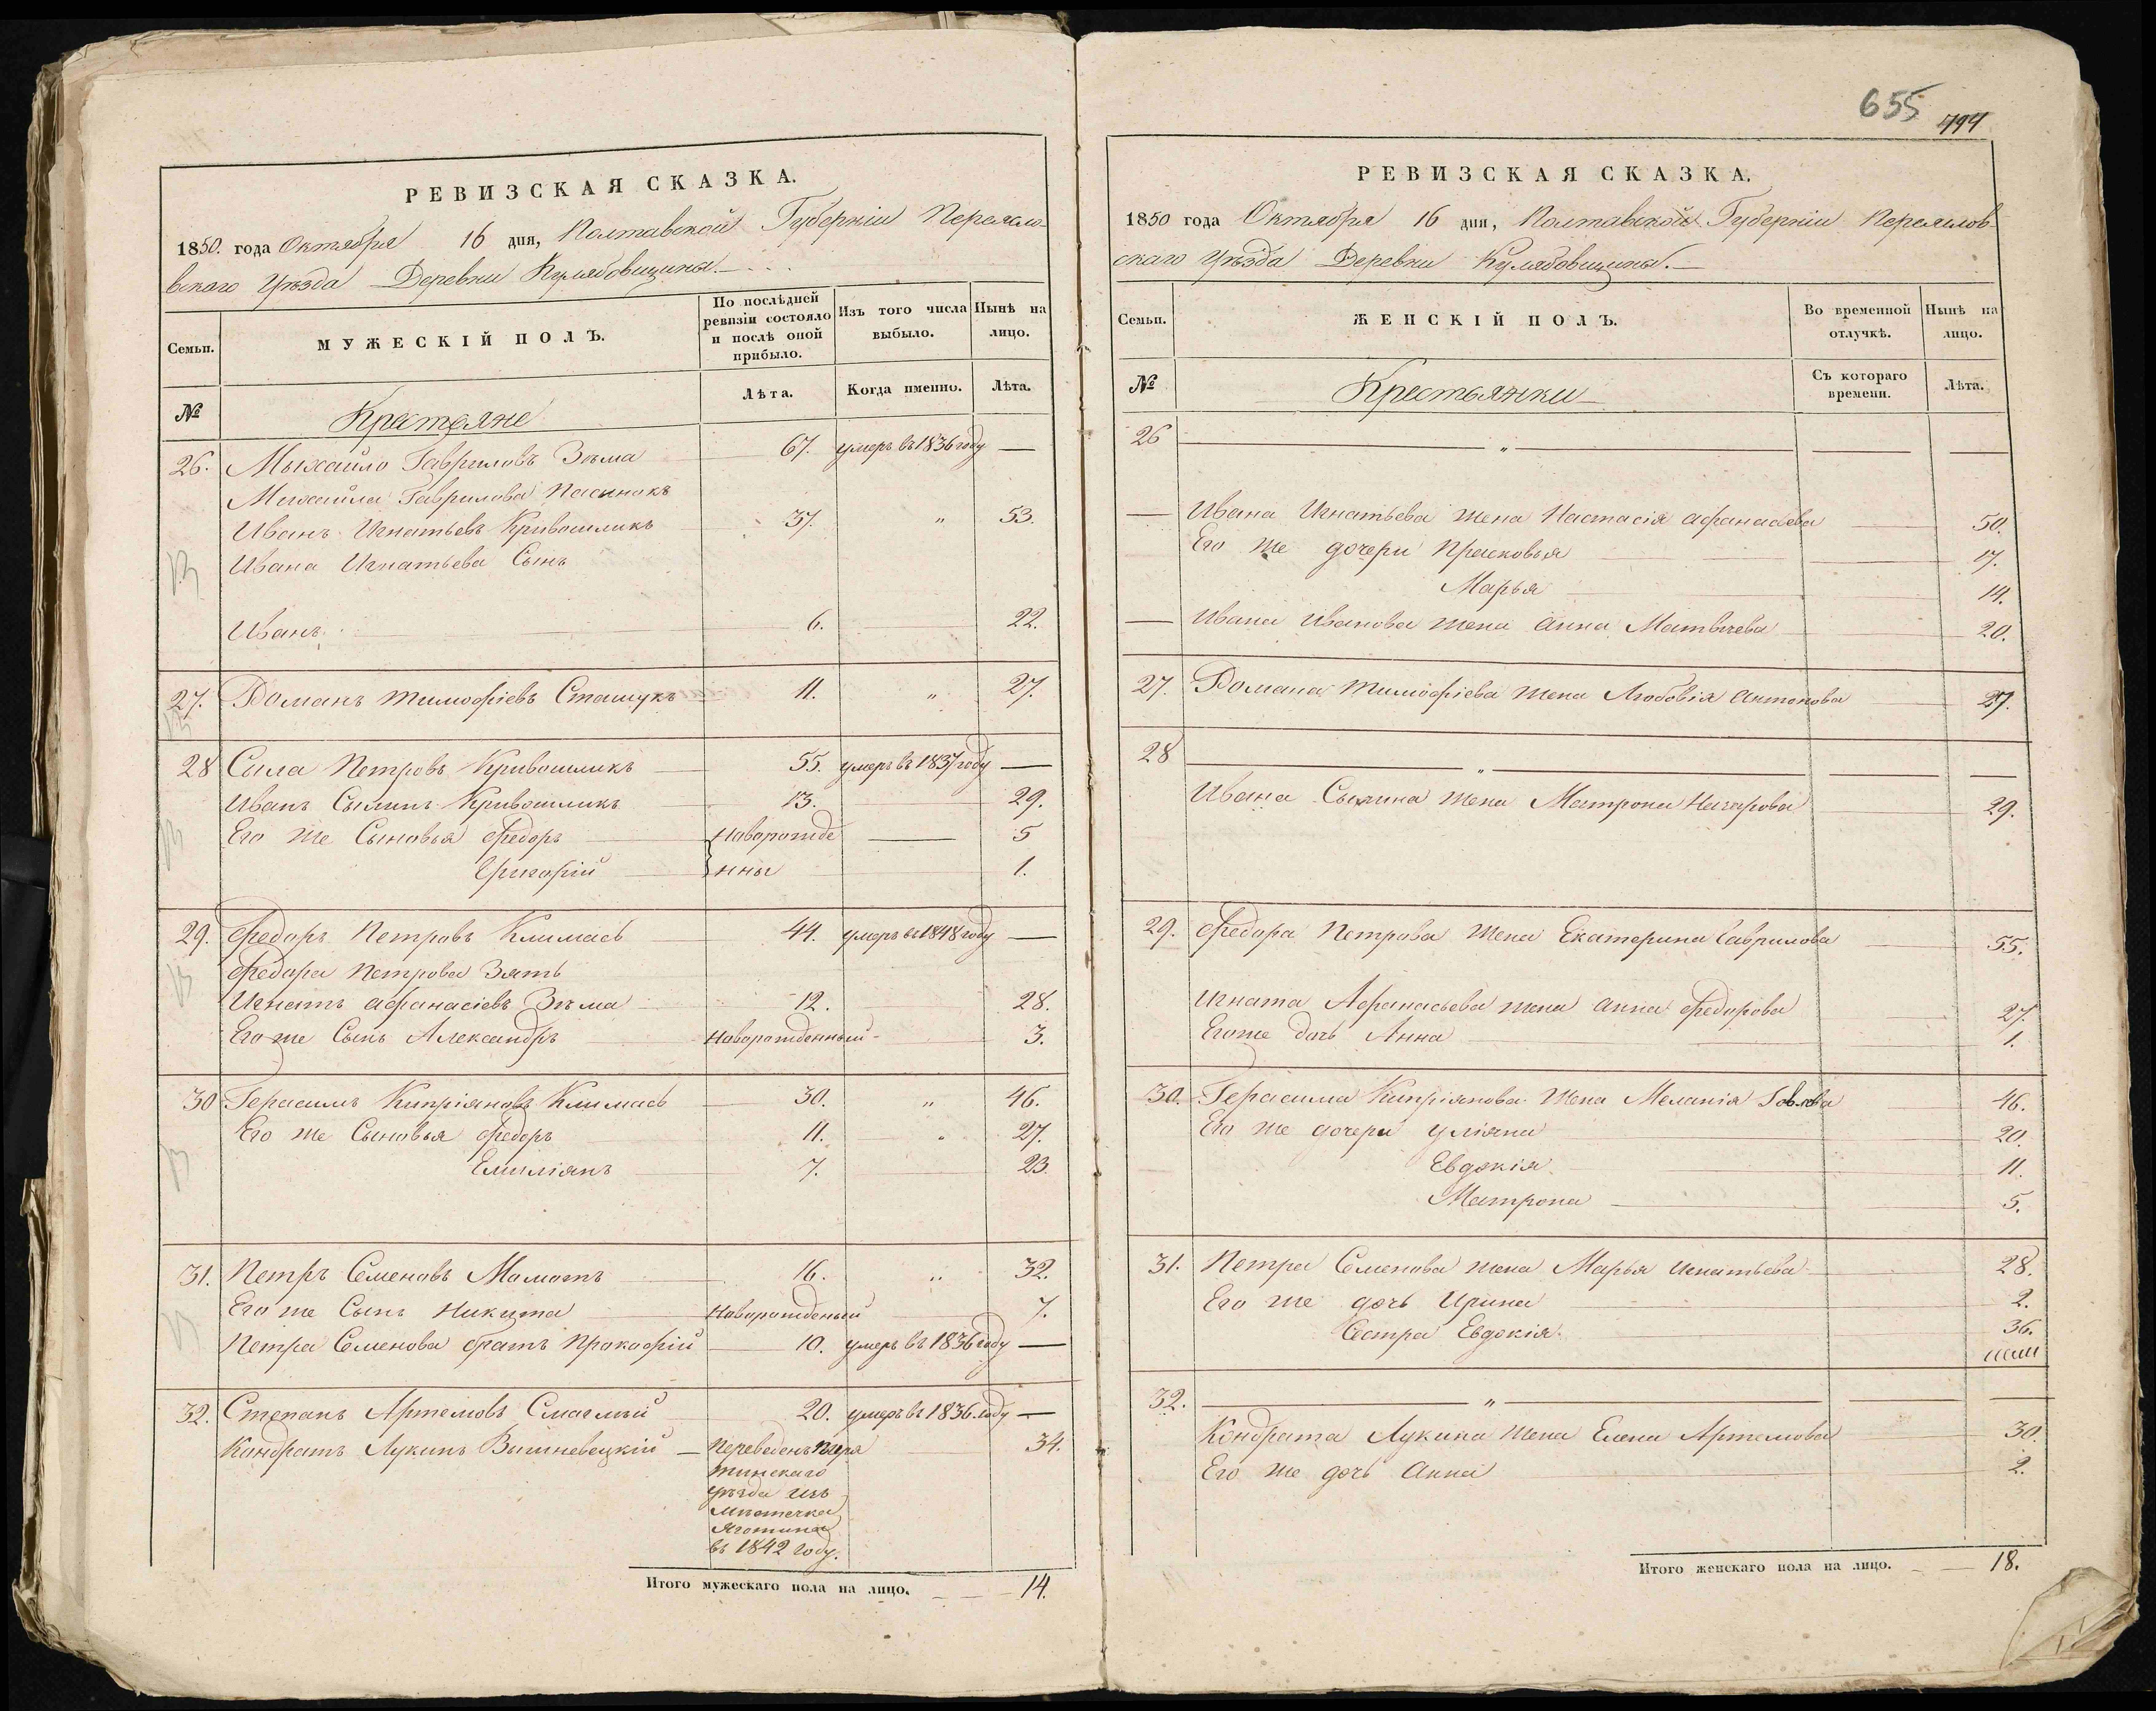 РЕВИЗСКАЯ СКАЗКА.
1850. года Октября 16 дня, Полтавской Губерніи Переясло-
вскаго Уѣзда Деревни Кулябовщины.
Семьи.
МУЖЕСКІЙ ПОЛЪ.
По послѣдней ревизіи состояло и послѣ оной прибыло.
Изъ того числа выбыло.
Нынѣ на лицо.
№
Крестьяне
Лѣта.
Когда именно.
Лѣта.
26. Михайло Гавриловъ Зѣма 67. умеръ въ 1836 году —
Михайла Гаврилова Пасынокъ
Иванъ Игнатьевъ Кривошликъ 37. " 53.
Ивана Игнатьева Сынъ
Иванъ 6. 22.
27. Романъ Тимофіевъ Сташукъ 11. " 27.
28 Сыла Петровъ Кривошликъ 55. умеръ въ 1837 году —
Иванъ Сылинъ Кривошликъ 13. 29.
Его же Сыновья Федоръ Новорожде 5
Григорій нны 1.
29. Федоръ Петровъ Климась 44. умеръ въ 1848 году —
Федора Петрова Зять
Игнатъ Афанасіевъ Зѣма 12. 28.
Его же Сынъ Александръ Новорожденный 3.
30 Герасимъ Кипріяновъ Климась 30. " 46.
Его же Сыновья Федоръ 11. " 27.
Емиліянъ 7. 23.
31. Петръ Семеновъ Момотъ 16. " 32.
Его же Сынъ Никита Новорожденый 7.
Петра Семенова братъ Прокофій 10. умеръ въ 1836 году —
32. Степанъ Артемовъ Смаглый 20. умеръ въ 1836 году —
Кондратъ Лукинъ Вишневецкій — Переведенъ Пиря 34.
тинскаго
уѣзда изъ
мѣстечка
Яготина
въ 1842 году.
Итого мужескаго пола на лицо. — — 14.
655
РЕВИЗСКАЯ СКАЗКА.
1850 года Октября 16 дня, Полтавской Губерніи Переяслов-
скаго Уѣзда Деревни Кулябовщины.
Семьи.
ЖЕНСКІЙ ПОЛЪ.
Во временной отлучкѣ.
Нынѣ на лицо.
№
Крестьянки
Съ котораго времени.
Лѣта.
26 — " — — —
— Ивана Игнатьева жена Настасія Афанасьева 50.
Его же дочери Прасковья 17.
Марья 14.
— Ивана Иванова жена Анна Матвѣева 20.
27. Романа Тимофіева жена Любовія Антонова 27.
28 — " — — —
Ивана Сылина жена Матрона Назарова 29.
29. Федора Петрова жена Екатерина Гаврилова 55.
Игната Афанасьева жена Анна Федорова 27.
Его же дочь Анна 1.
30. Герасима Кипріянова жена Меланія 46.
Его же дочери Уліяна 20.
Евдокія 11.
Матрона 5.
31. Петра Семенова жена Марья Игнатьева 28.
Его же дочь Ирина 2.
Сестра Евдокія 36.
32. — " — —
Кондрата Лукина жена Елена Артемова 30.
Его же дочь Анна 2.
Итого женскаго пола на лицо. — — 18.